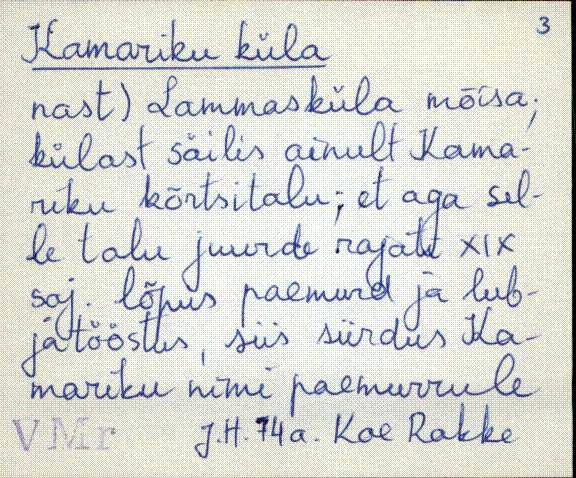 3
Kamariku küla
nast) Lammasküla mõisa;
külast säilis ainult Kama-
riku kõrtsitalu; et aga sel-
le talu juurde rajati XIX
saj. lõpus paemurd ja lub-
jatööstus, siis siirdus Ka-
mariku nimi paemurrule
VMr J.H. 74a. Koe Rakke